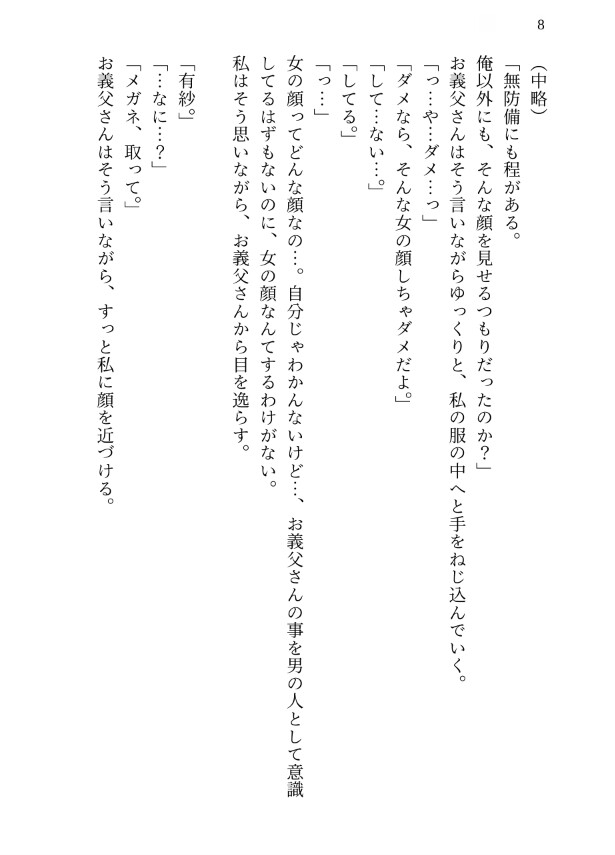 8
（中略）
「無防備にも程がある。
俺以外にも、そんな顔を見せるつもりだったのか？」
お義父さんはそう言いながらゆっくりと、私の服の中へと手をねじ込んでいく。
「っ…や…ダメ…っ」
「ダメなら、そんな女の顔しちゃダメだよ。」
「して…ない…。」
「してる。」
「っ…」
女の顔ってどんな顔なの…。自分じゃわかんないけど…、お義父さんの事を男の人として意識
してるはずもないのに、女の顔なんてするわけがない。
私はそう思いながら、お義父さんから目を逸らす。
「有紗。」
「…なに…？」
「メガネ、取って。」
お義父さんはそう言いながら、すっと私に顔を近づける。